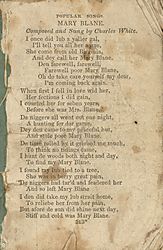 POPULAR SONGS.
MARY BLANE.
Composed and Sung by Charles White.
I once did lub a yaller gal,
I'll tell you all her name,
She come from old Virginia,
And dey call her Mary Blane.
Den farewell, farewell,
Farewell poor Mary Blane,
Oh do take care yourself my dear,
I'm coming back again.
When first I fell in love wid her,
Her fections I did gain,
I courted her for seben years,
Before she was Mrs. Blane.
De niggers all went out one night,
A hunting for dar game,
Dey dey came to my peaceful hut,
And stole poor Mary Blane.
De time rolled by it grieved me much,
To think no tidings came,
I hunt de woods both night and day,
To find my Mary Blane.
I found my lub tied to a tree,
She was in berry great pain,
De niggers had tar'd and feathered her
And so left Mary Blane
I den did take my lub strait home,
To relieve her from her pain,
But afore de sun did shine next day,
Stiff and cold was Mary Blane.